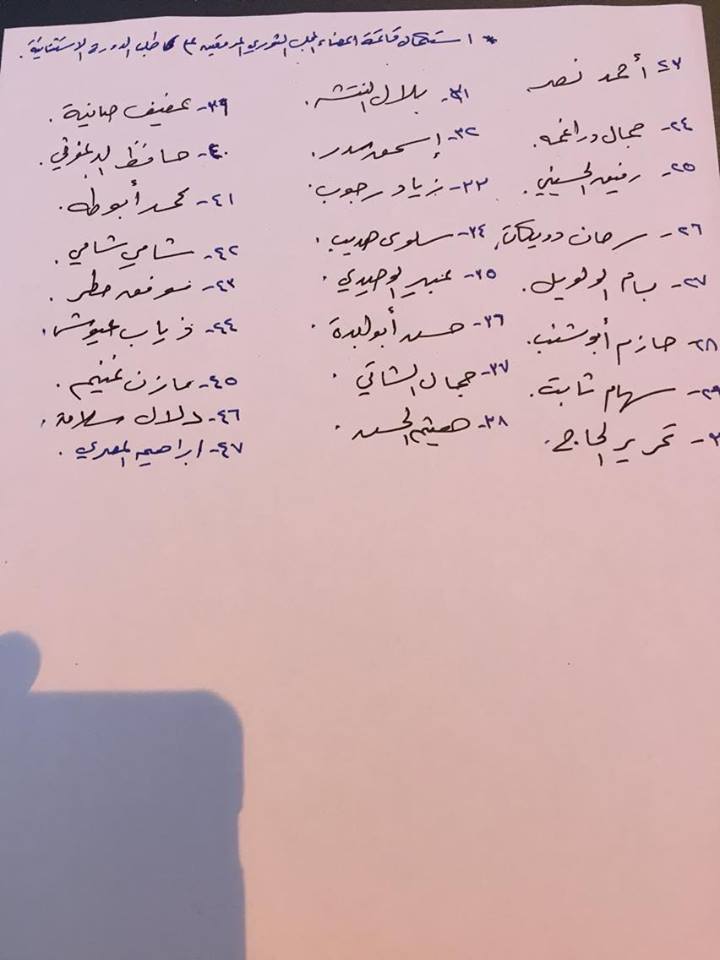 * استكمال قائمة اعضاء المجلس الثوري الموقعين على طلب الدورة الاستثنائية.
٢٣- أحمد نصر
٢٤- جمال دراغمه.
٢٥- رفيق الحسيني.
٢٦- سرحان دويكات.
٢٧- بسام الولويل.
٢٨- حازم أبو شنب.
٢٩- سهام ثابت.
٣٠- تحرير الحاج.
٣١- بلال النتشه.
٣٢- إسحق سدر.
٣٣- زياد رجوب.
٣٤- سلوى هديب.
٣٥- عبير الوحيدي.
٣٦- حسن أبو لبدة.
٣٧- جمال الشاتي.
٣٨- هيثم الحسن.
٣٩- عفيف صافية.
٤٠- حافظ البرغوثي.
٤١- محمد أبو طه.
٤٢- شامي شامي.
٤٣- توفيق مطر.
٤٤- ذياب عيوش.
٤٥- مازن غنيم.
٤٦- دلال سلامة.
٤٧- ابراهيم المصري.